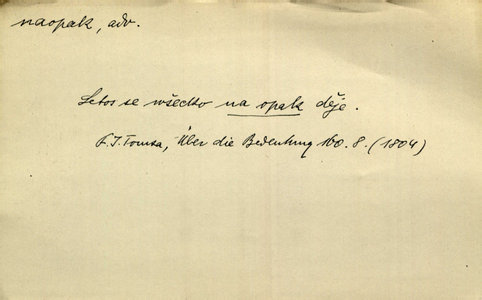 naopak, adv.
Letos se wšecko na opak děje.
F.J.Tomsa, Über die Bedeutung 160.8.(1804)